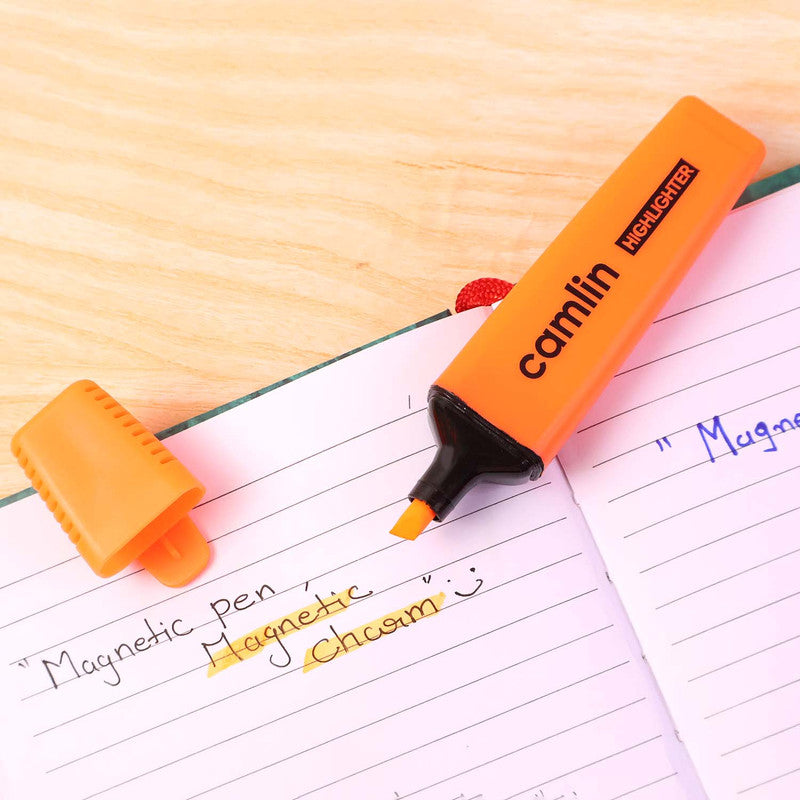 camlin
HIGHLIGHTER
"Magnetic pen, Magnetic Charm"
" Magne